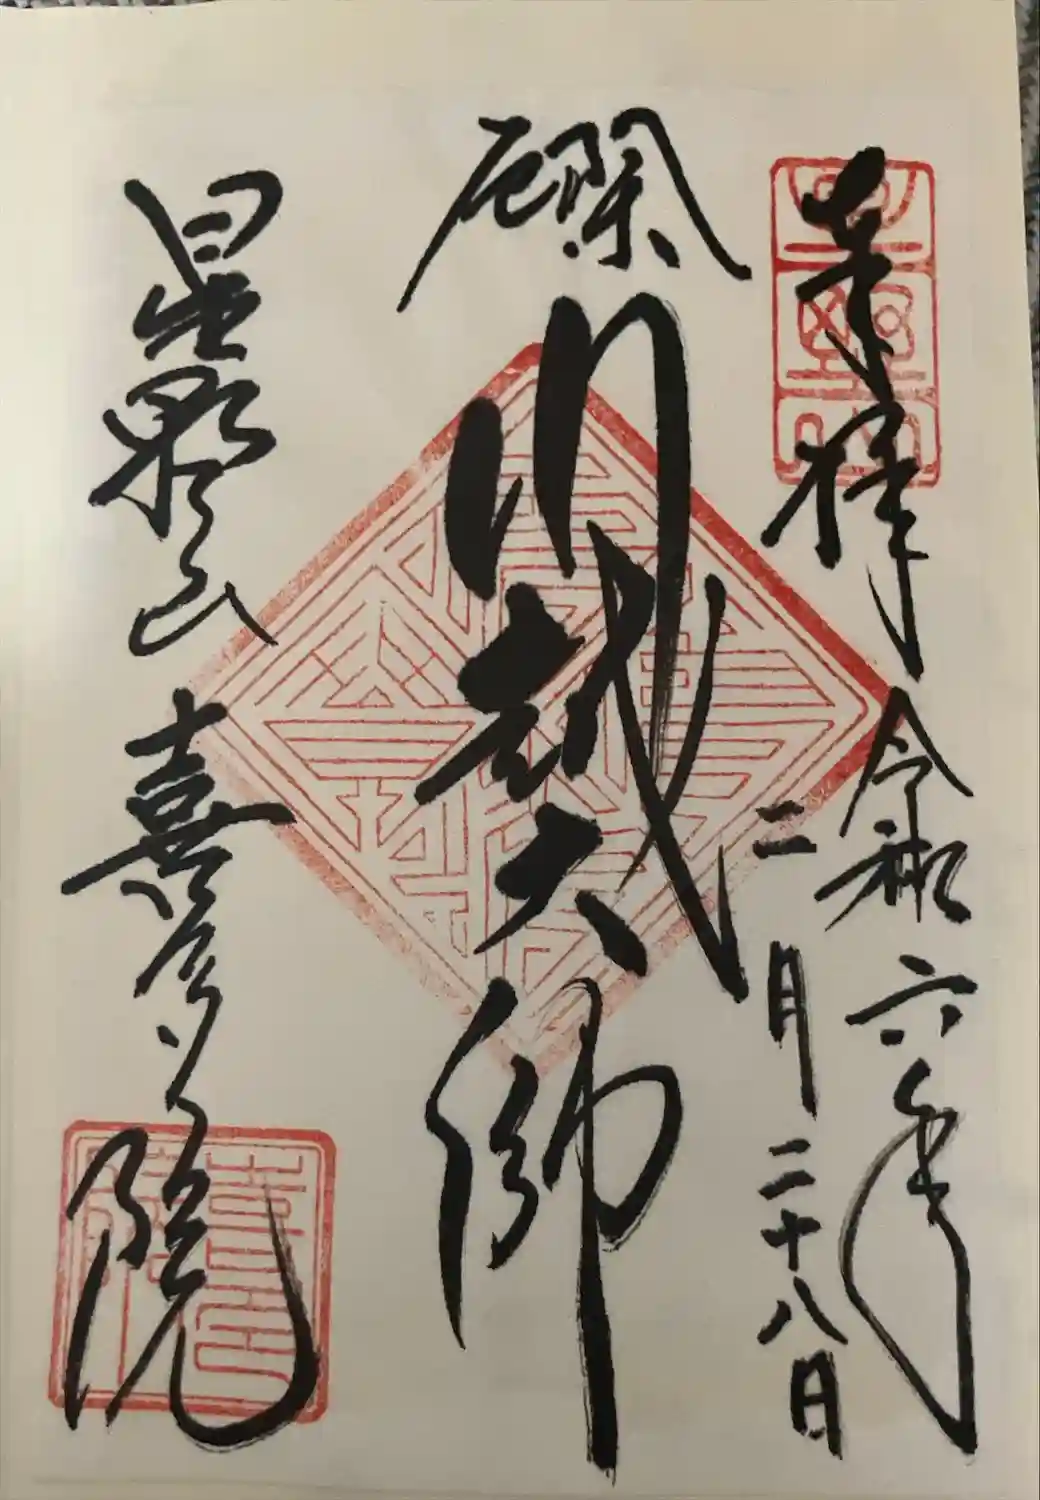 奉拝
令和六年
二月二十八日
厄除
川越大師
星野山
喜多院